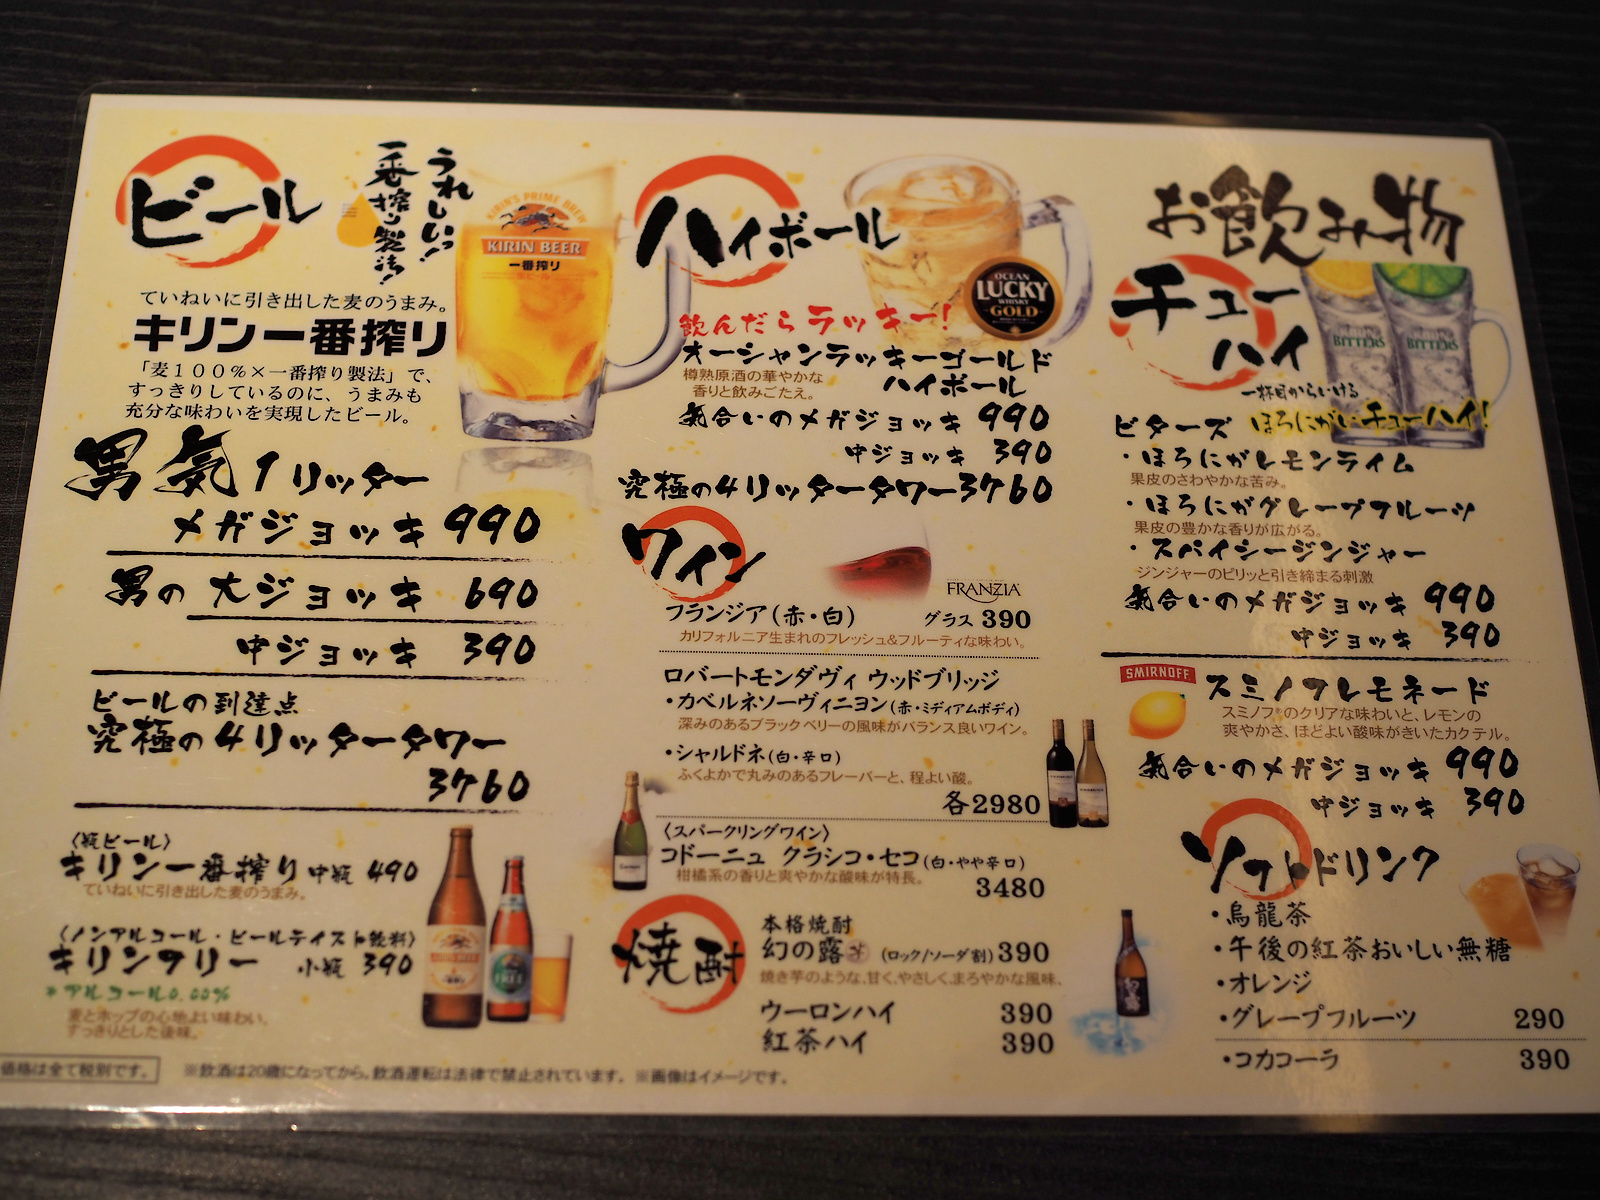 お飲み物
ビール
うれしいっ!
一番搾り製法!
KIRIN'S PRIME BREW
KIRIN BEER
一番搾り
ていねいに引き出した麦のうまみ。
キリン一番搾り
「麦100%×一番搾り製法」で、
すっきりしているのに、うまみも
充分な味わいを実現したビール。
男気1リッター
メガジョッキ 990
男の大ジョッキ 690
中ジョッキ 390
ビールの到達点
究極の4リッタータワー
3760
〈瓶ビール〉
キリン一番搾り 中瓶 490
ていねいに引き出した麦のうまみ。
〈ノンアルコール・ビールテイスト飲料〉
キリンフリー 小瓶 390
*アルコール0.00%
麦とホップの心地よい味わい、
すっきりとした後味。
ハイボール
OCEAN
LUCKY
WHISKY
GOLD
飲んだらラッキー!
オーシャンラッキーゴールド
ハイボール
樽熟原酒の華やかな
香りと飲みごたえ。
気合いのメガジョッキ 990
中ジョッキ 390
究極の4リッタータワー3760
ワイン
FRANZIA
フランジア(赤・白) グラス 390
カリフォルニア生まれのフレッシュ&フルーティな味わい。
ロバートモンダヴィ ウッドブリッジ
・カベルネソーヴィニヨン(赤・ミディアムボディ)
深みのあるブラックベリーの風味がバランス良いワイン。
・シャルドネ(白・辛口)
ふくよかで丸みのあるフレーバーと、程よい酸。
各2980
〈スパークリングワイン〉
コドーニュ クラシコ・セコ(白・やや辛口)
柑橘系の香りと爽やかな酸味が特長。
3480
焼酎
本格焼酎
幻の露 芋 (ロック/ソーダ割) 390
焼き芋のような、甘く、やさしく、まろやかな風味。
ウーロンハイ 390
紅茶ハイ 390
チューハイ
KIRIN
BITTERS
KIRIN
BITTERS
一杯目からいける
ビターズ ほろにがいチューハイ!
・ほろにがレモンライム
果皮のさわやかな苦み。
・ほろにがグレープフルーツ
果皮の豊かな香りが広がる。
・スパイシージンジャー
ジンジャーのピリッと引き締まる刺激
気合いのメガジョッキ 990
中ジョッキ 390
SMIRNOFF
スミノフレモネード
スミノフ®のクリアな味わいと、レモンの
爽やかさ、ほどよい酸味がきいたカクテル。
気合いのメガジョッキ 990
中ジョッキ 390
ソフトドリンク
・烏龍茶
・午後の紅茶おいしい無糖
・オレンジ
・グレープフルーツ 290
・コカコーラ 390
価格は全て税別です。
※飲酒は20歳になってから。飲酒運転は法律で禁止されています。 ※画像はイメージです。